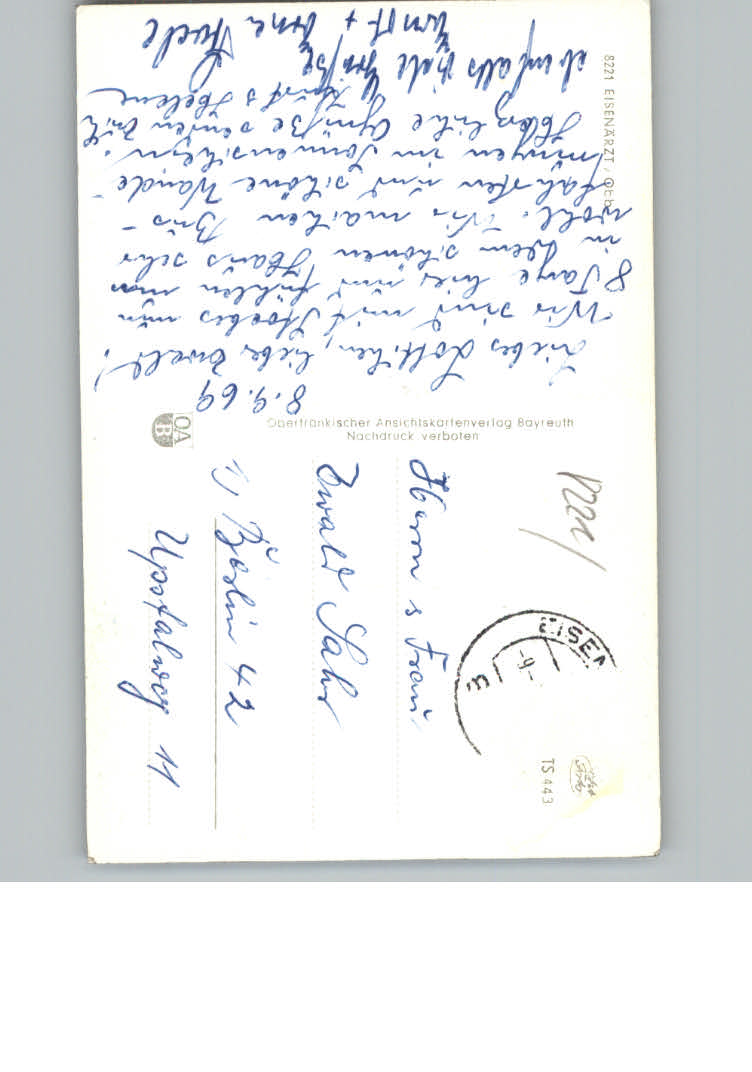 8221 EISENÄRZT / Obb
8.9.69
Liebes Lottchen, lieber Ewald!
Wir sind mit Stoebes nun
8 Tage hier und fühlen uns
in dem schönen Haus sehr
wohl. Wir machen Bus-
fahrten und schöne Wande-
rungen im Sonnenschein.
Herzliche Grüße senden Euch
Kurt & Helene
ebenfalls viele Grüße
Ernst + Erna
Oberfränkischer Ansichtskartenverlag Bayreuth
Nachdruck verboten
OA
B
Herrn & Frau
Ewald Sahr
1) Berlin 42
Upstalweg 11
EISEN
TS 443